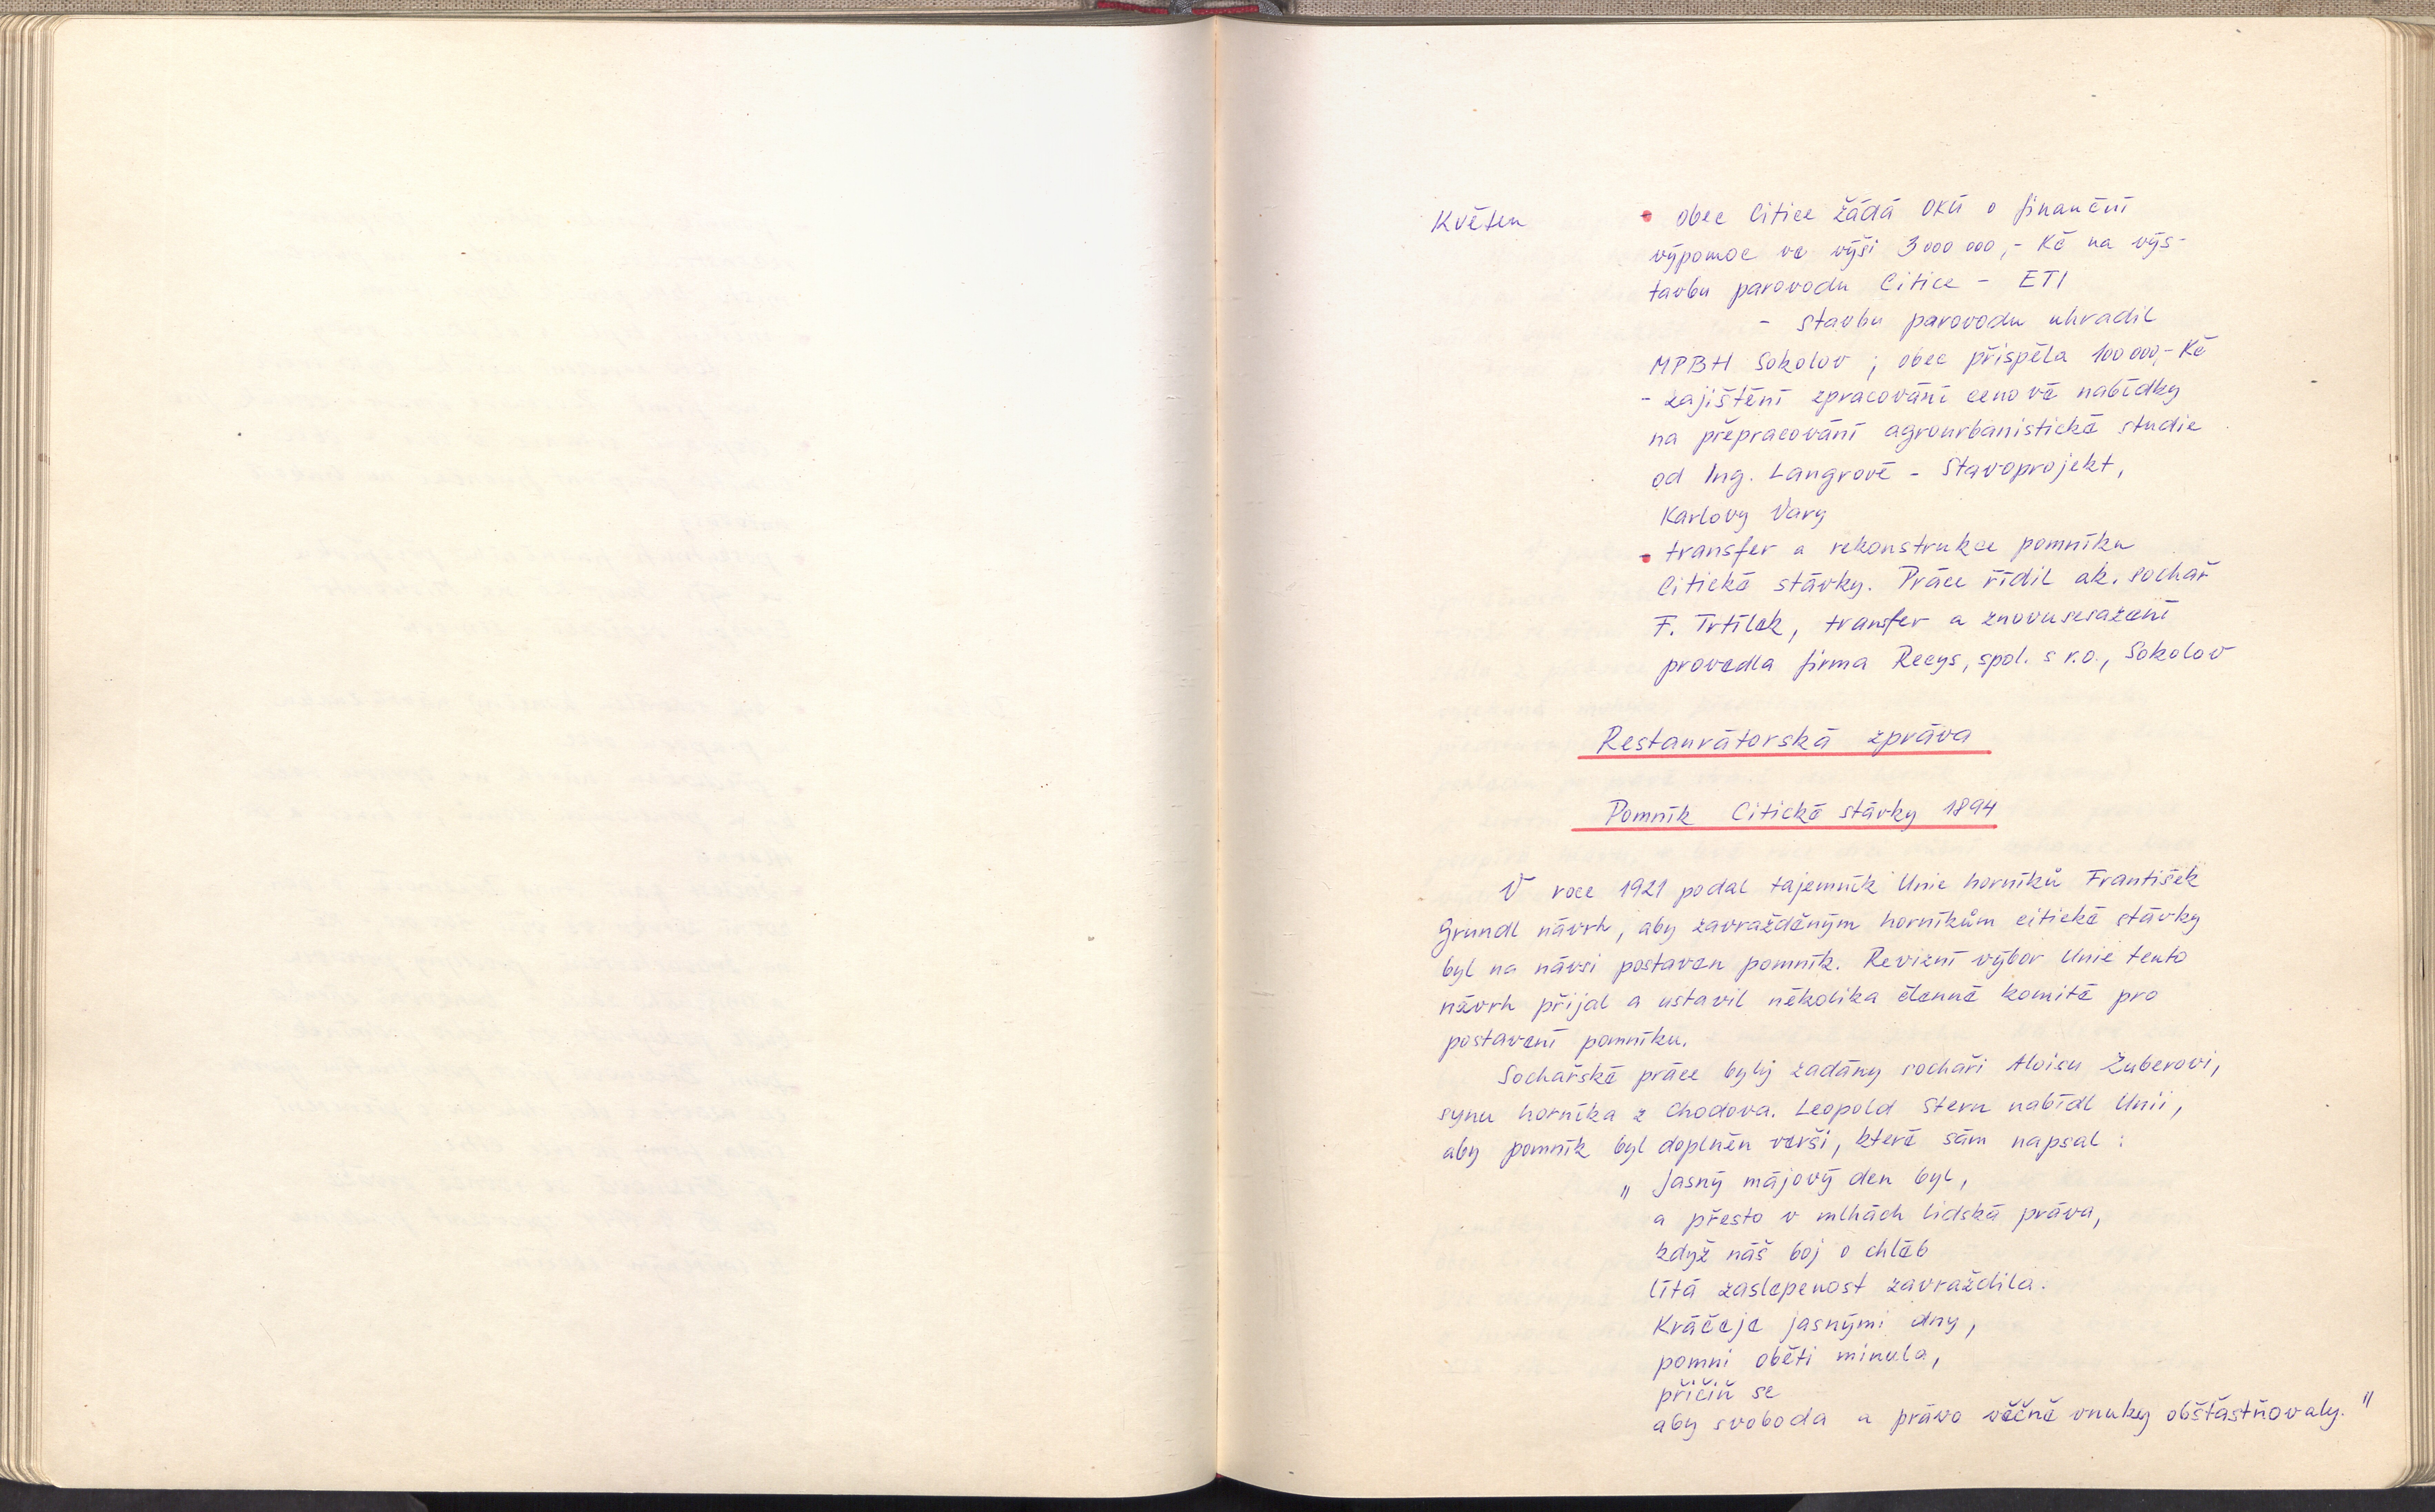 Květen
• obec Citice žádá OKÚ o finanční
výpomoc ve výši 3 000 000,- Kč na výs-
tavbu parovodu Citice - ETI
- stavbu parovodu uhradil
MPBH Sokolov ; obec přispěla 100 000,- Kč
- zajištění zpracování cenové nabídky
na přepracování agrourbanistické studie
od Ing. Langrové - Stavoprojekt,
Karlovy Vary
• transfer a rekonstrukce pomníku
Citické stávky. Práce řídil ak. sochař
F. Trtílek, transfer a znovusesazení
provedla firma Recys, spol. s r.o., Sokolov
Restaurátorská zpráva
Pomník Citické stávky 1894
V roce 1921 podal tajemník Unie horníků František
Grundl návrh, aby zavražděným horníkům citické stávky
byl na návsi postaven pomník. Revizní výbor Unie tento
návrh přijal a ustavil několika členné komité pro
postavení pomníku.
Sochařské práce byly zadány sochaři Aloisu Zuberovi,
synu horníka z Chodova. Leopold Stern nabídl Unii,
aby pomník byl doplněn verši, které sám napsal :
„ Jasný májový den byl,
a přesto v mlhách lidská práva,
když náš boj o chléb
lítá zaslepenost zavraždila.
Kráčeje jasnými dny,
pomni oběti minula,
přičiň se
aby svoboda a právo věčně vnuky obšťastňovaly. "